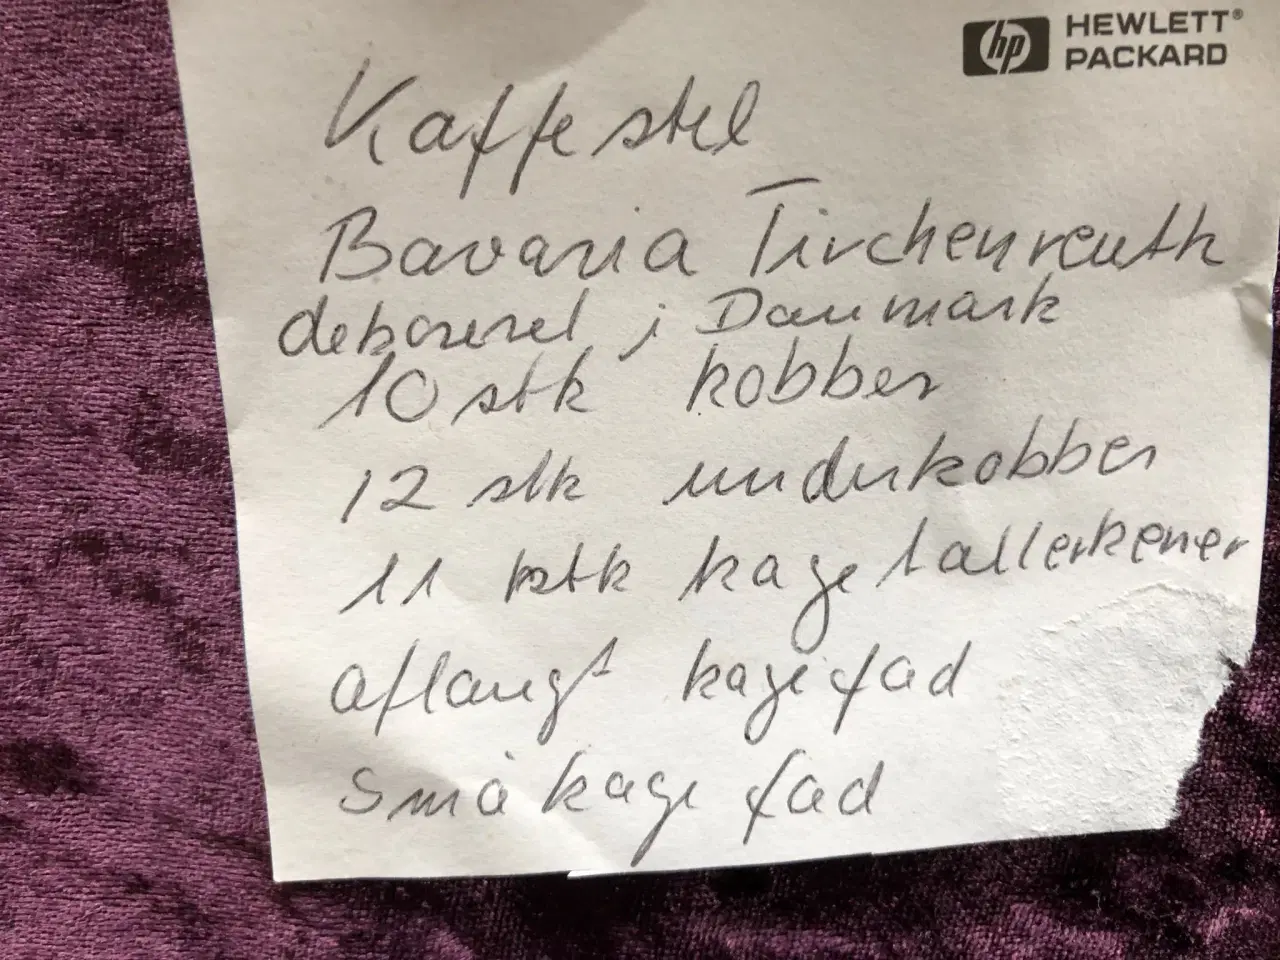 hp HEWLETT® PACKARD
Kaffestel
Bavaria Tirchenreuth
dekorerel i Danmark
10 stk kobber
12 stk underkobber
11 stk kage tallerkener
aflangt kagefad
Småkage fad